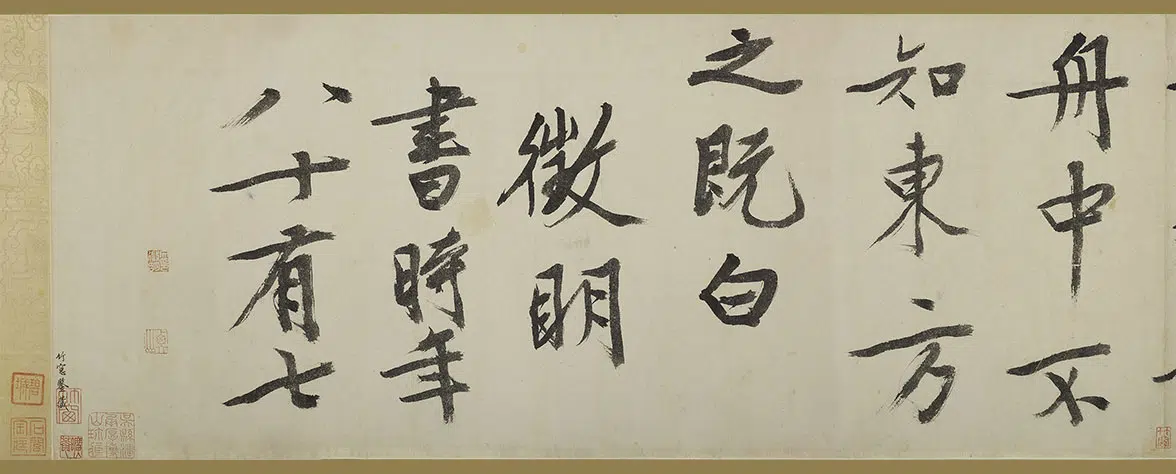 舟中不
知東方
之既白
徵明
書時年
八十有七
竹窓鑒藏